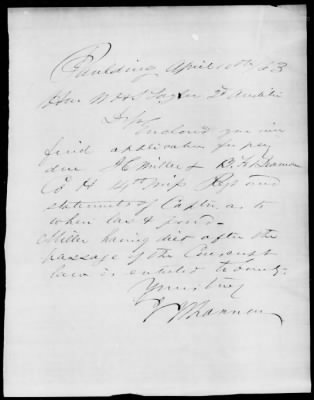 Paulding April 10th 63
Hon W H S Taylor 2d Auditor
Sir
Enclosed you will
find application for pay
due J C Miller &
Co H 4th Miss Regt and
statements of Captn as to
when last paid.
Miller having died after the
passage of the Conscript
law is entitled to bounty.
Yours truly
Shannon